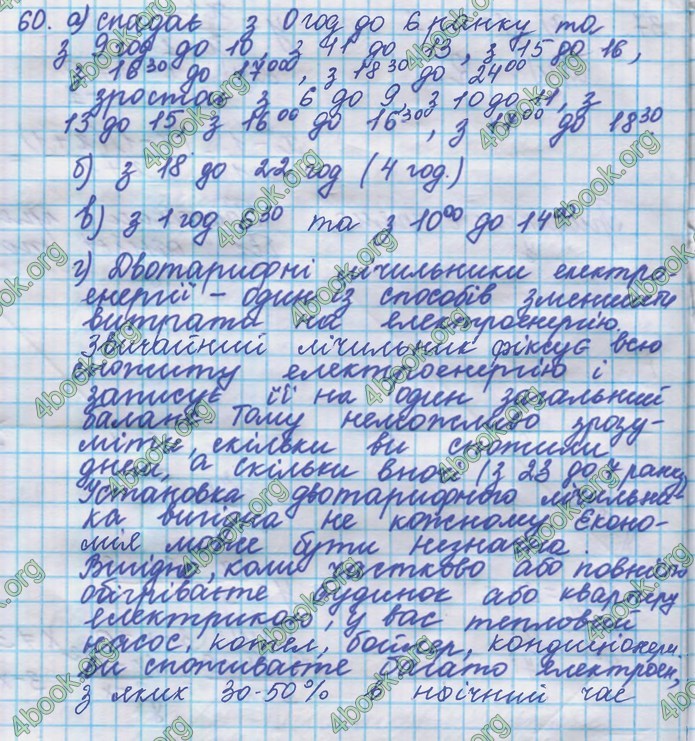 60. а) спадає з 0 год до 6 ранку та
з 9 год до 10, з 11 до 13, з 15 до 16,
з 16³⁰ до 17⁰⁰, з 18³⁰ до 24⁰⁰
зростає з 6 до 9, з 10 до 11, з
13 до 15, з 16⁰⁰ до 16³⁰, з 17⁰⁰ до 18³⁰.
б) з 18 до 22 год (4 год.)
в) з 1 год 5³⁰ та з 10⁰⁰ до 14⁰⁰
г) Двотарифні лічильники електро
енергії – один із способів зменшити
витрати на електроенергію.
Звичайний лічильник фіксує всю
спожиту електроенергію і
записує її на один загальний
баланс. Тому неможливо зрозу-
міти, скільки ви спожили
днем, а скільки вночі (з 23 до 7 ранку)
Установка двотарифного лічильни-
ка вигідна не кожному. Еконо-
мія може бути незначна.
Вигідно, коли частково або повністю
обігріваєте будинок або квартиру
електрикою, у вас тепловий
насос, котел, бойлер, кондиціонери
ви споживаєте багато електроен,
з яких 30-50% в нічний час
4book.org